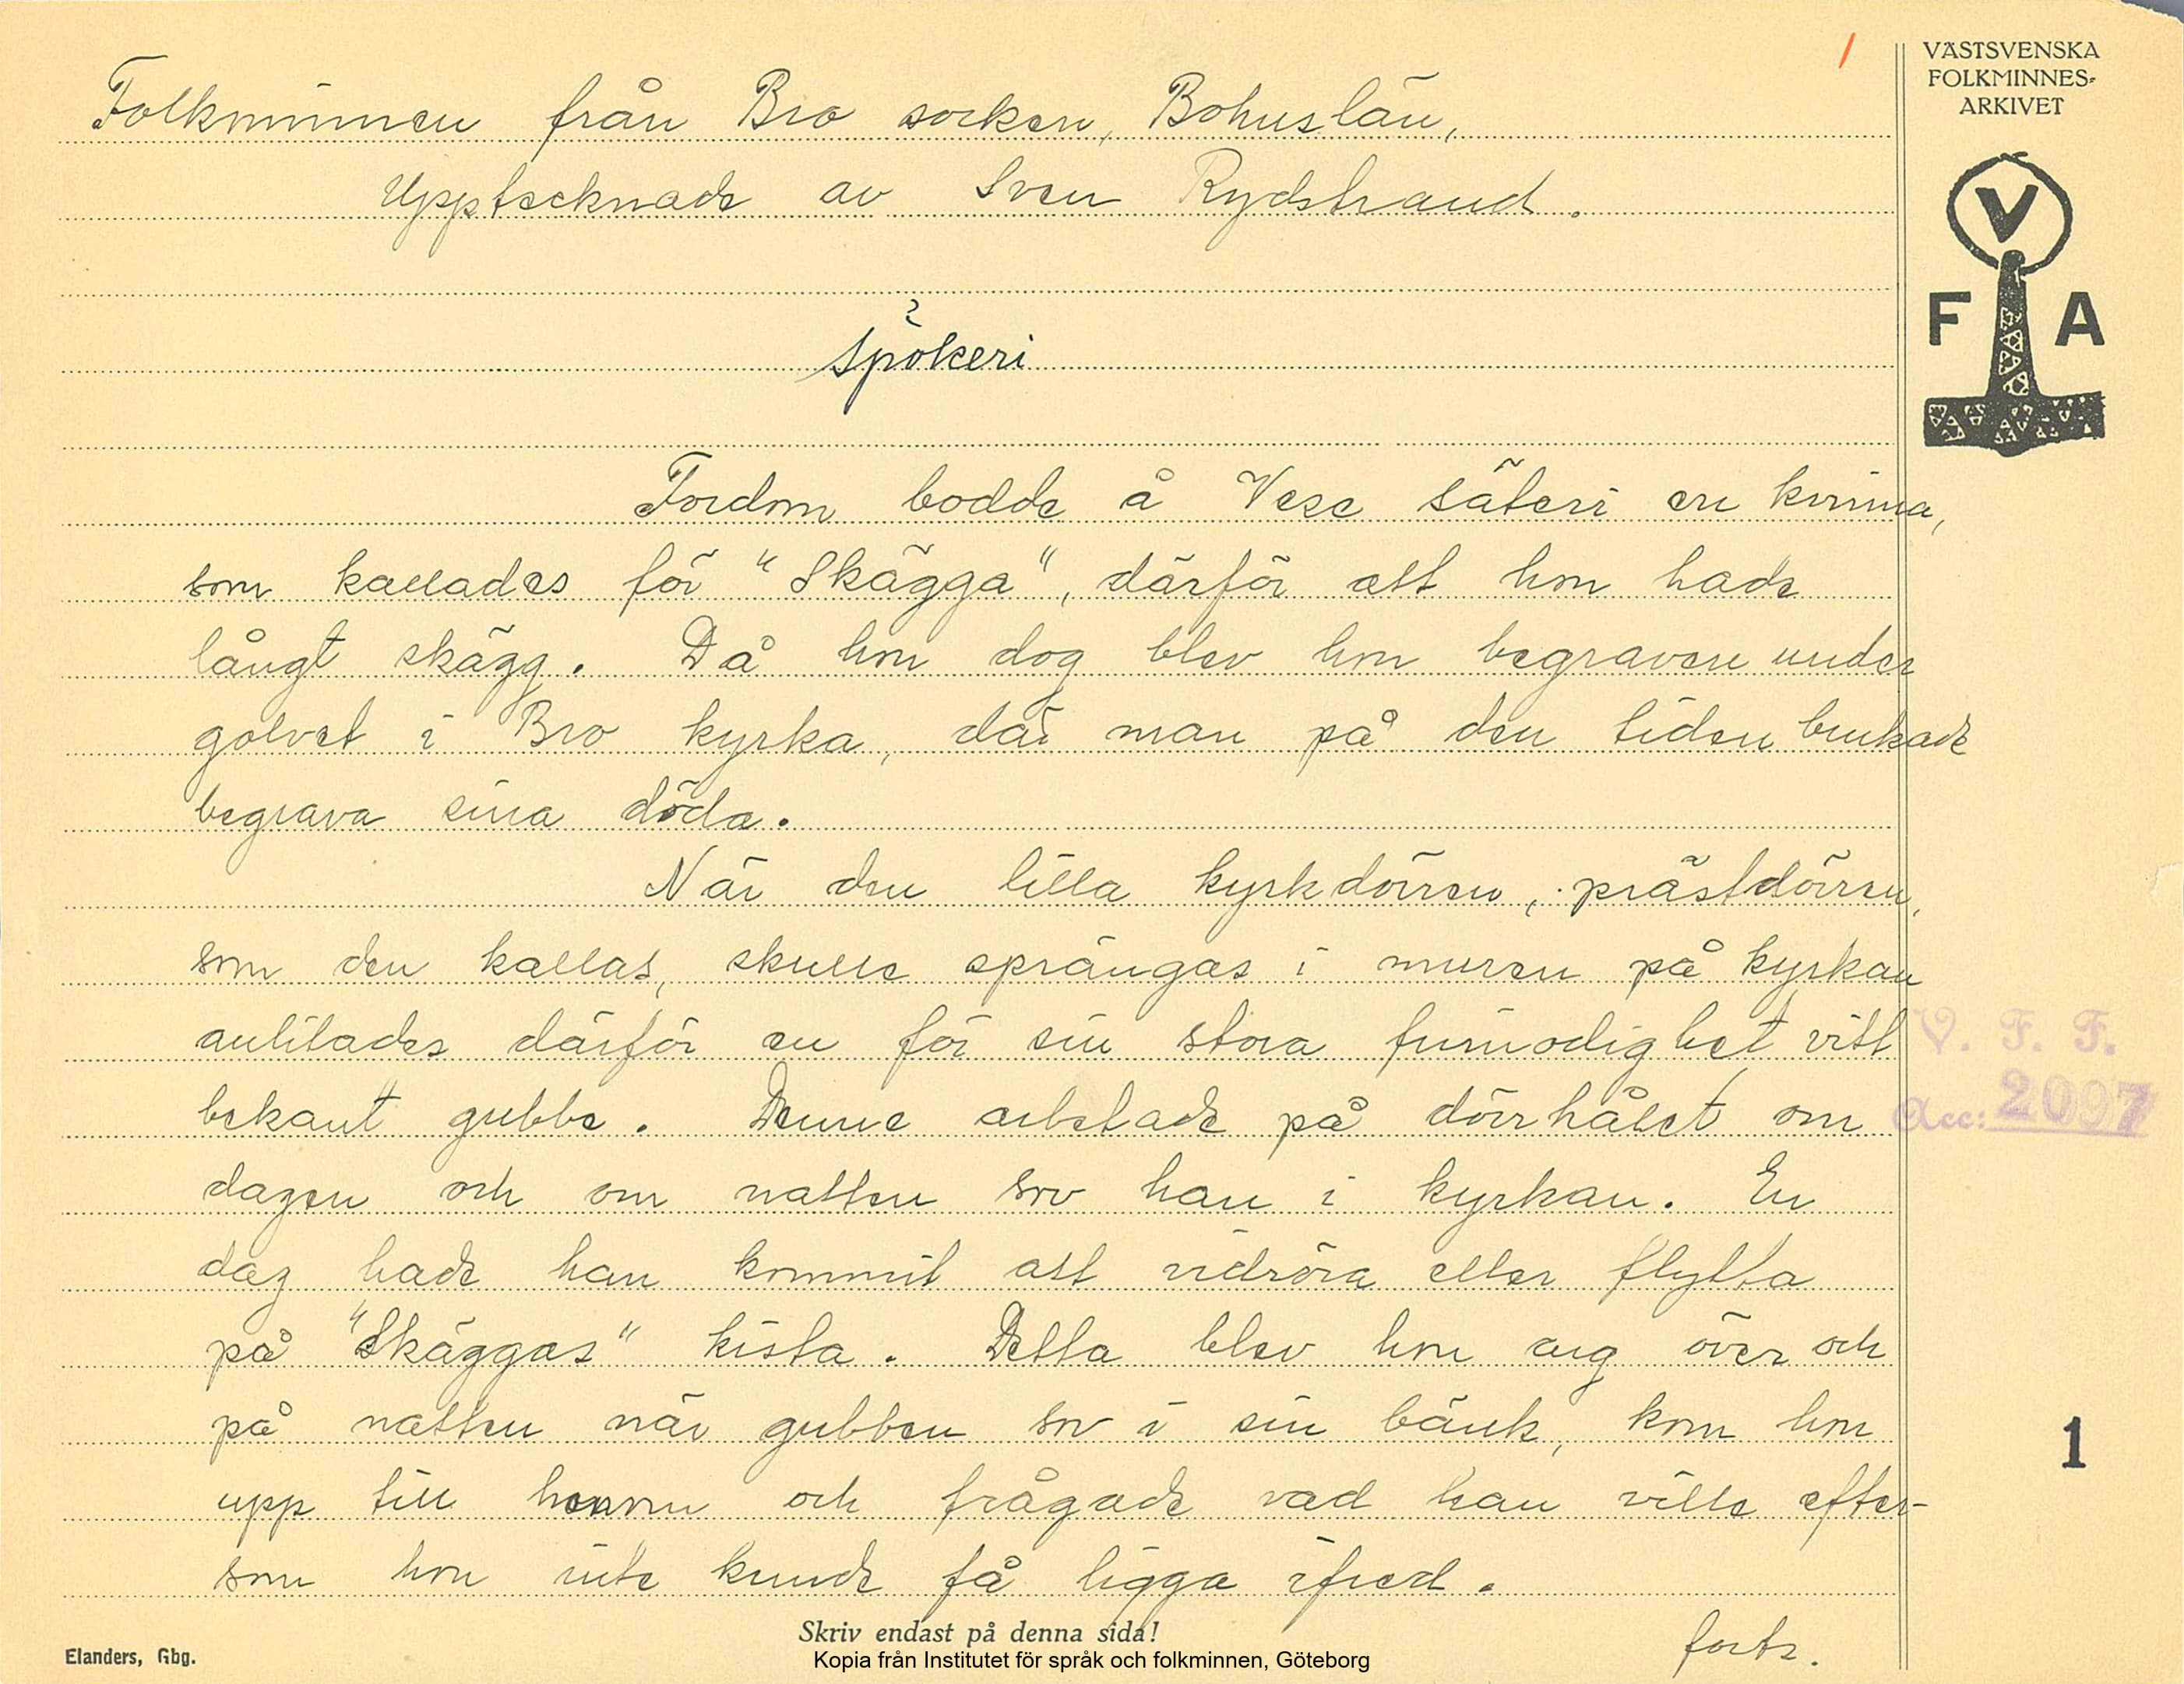 1
VÄSTSVENSKA
FOLKMINNES-
ARKIVET
V
F A
Folkminnen från Bro socken, Bohuslän,
Upptecknade av Sven Rydstrand.
Spökeri
Fordom bodde å Vese säteri en kvinna,
som kallades för "Skägga", därför att hon hade
långt skägg. Då hon dog blev hon begraven under
golvet i Bro kyrka, där man på den tiden brukade
begrava sina döda.
När den lilla kyrkdörren, prästdörren,
som den kallas, skulle sprängas i muren på kyrkan
anlitades därför en för sin stora furmodighet vitt
bekant gubbe. Denne arbetade på dörrhålet om
dagen och om natten sov han i kyrkan. En
dag hade han kommit att vidröra eller flytta
på "Skäggas" kista. Detta blev hon arg över och
på natten när gubben sov i sin bänk, kom hon
upp till honom och frågade vad han ville efter-
som hon inte kunde få ligga ifred.
forts.
V. F. F.
Acc: 2097
1
Skriv endast på denna sida!
Elanders, Gbg.
Kopia från Institutet för språk och folkminnen, Göteborg